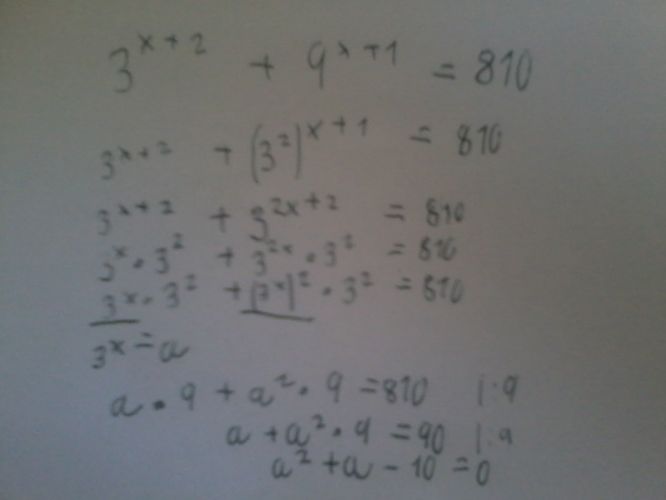 3^{x+2} + 9^{x+1} = 810
3^{x+2} + (3^2)^{x+1} = 810
3^{x+2} + 3^{2x+2} = 810
3^x · 3^2 + 3^{2x} · 3^2 = 810
3^x · 3^2 + (3^x)^2 · 3^2 = 810
3^x = a
a · 9 + a^2 · 9 = 810 |:9
a + a^2 · 9 = 90 |:9
a^2 + a - 10 = 0